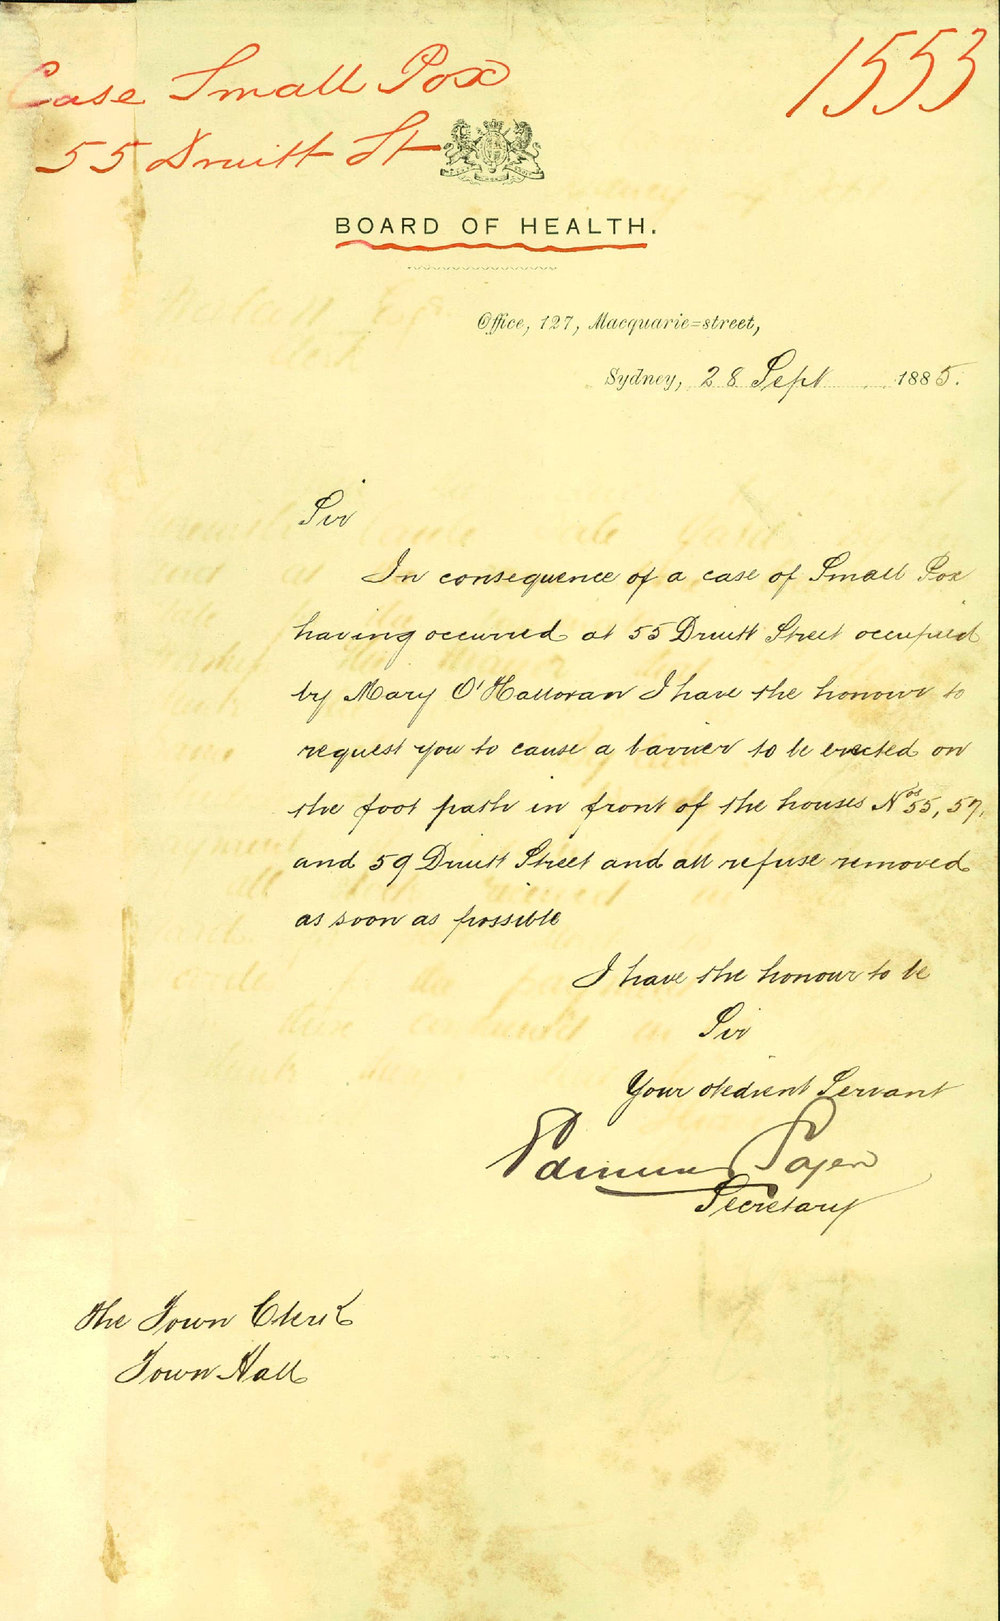 Case Small Pox
1553
55 Druitt St
BOARD OF HEALTH.
Office, 127, Macquarie=street,
Sydney, 28 Sept 1885.
Sir
In consequence of a case of Small Pox
having occurred at 55 Druitt Street occupied
by Mary O'Halloran I have the honour to
request you to cause a barrier to be erected on
the foot path in front of the houses Nos 55, 57,
and 59 Druitt Street and all refuse removed
as soon as possible
I have the honour to be
Sir
Your obedient Servant
Edmund Sager
Secretary
The Town Clerk
Town Hall